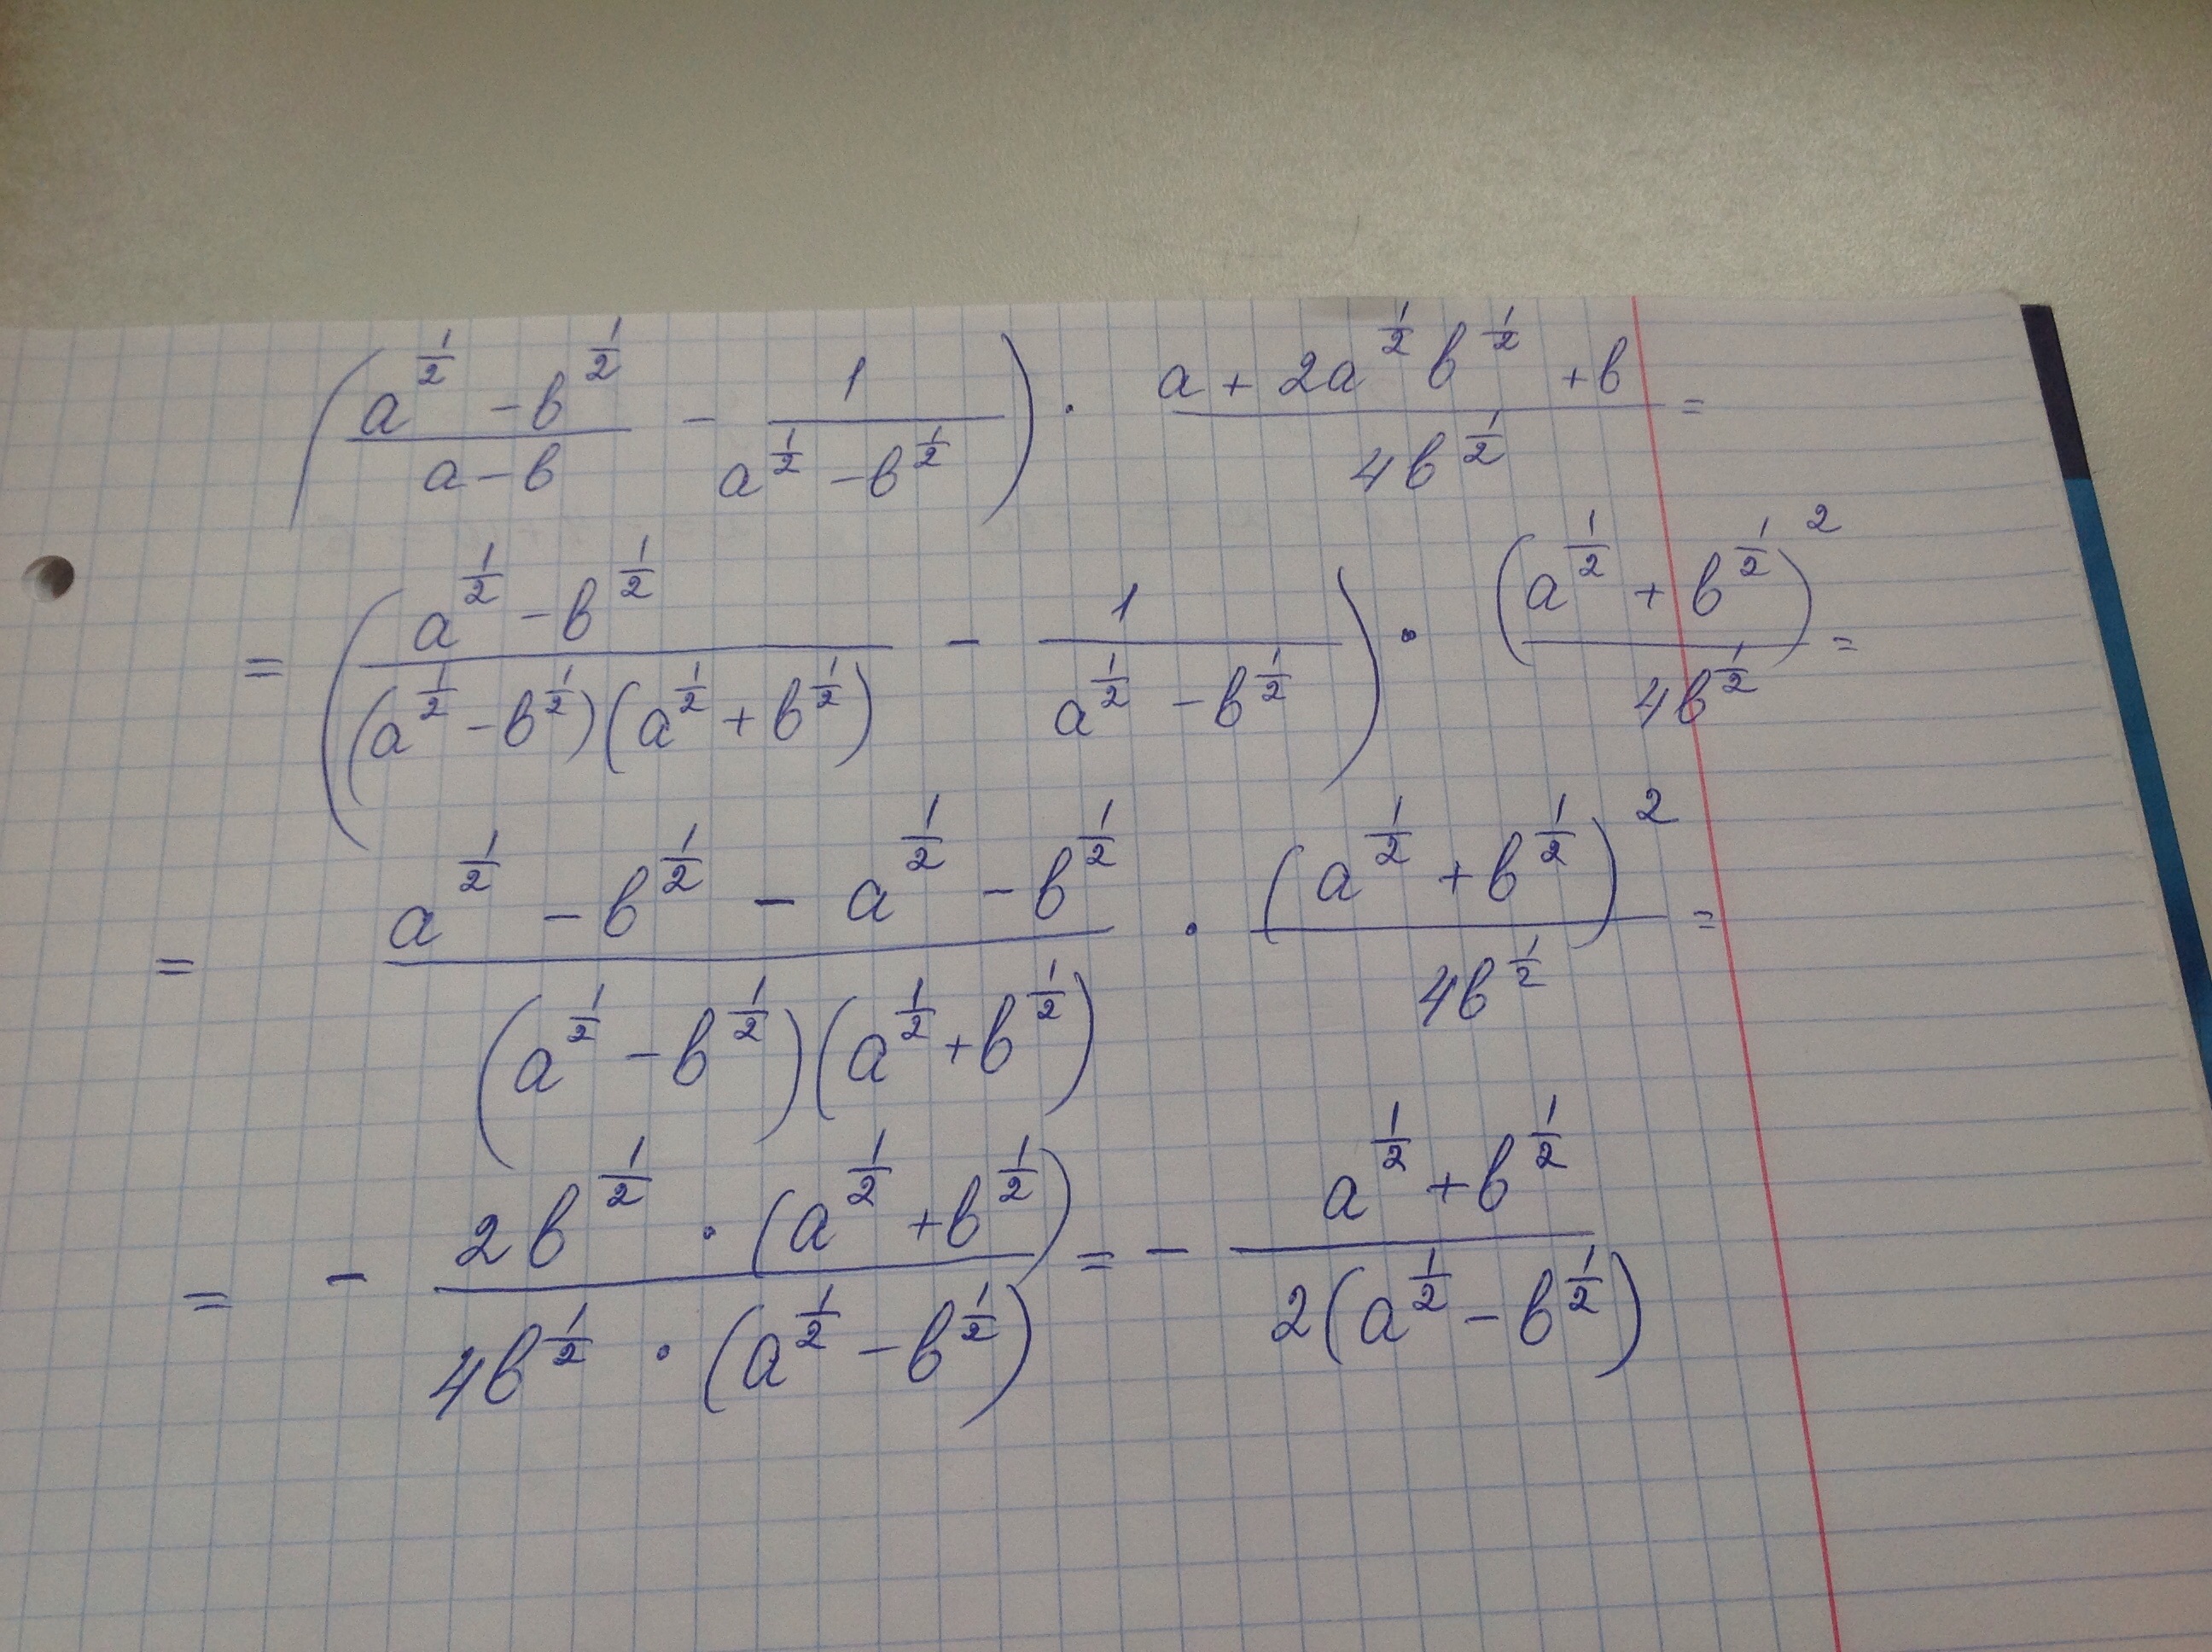 (a^{1/2} - b^{1/2} / a - b - 1 / a^{1/2} - b^{1/2}) · a + 2a^{1/2} b^{1/2} + b / 4b^{1/2} =
= (a^{1/2} - b^{1/2} / (a^{1/2} - b^{1/2})(a^{1/2} + b^{1/2}) - 1 / a^{1/2} - b^{1/2}) · (a^{1/2} + b^{1/2})^2 / 4b^{1/2} =
= a^{1/2} - b^{1/2} - a^{1/2} - b^{1/2} / (a^{1/2} - b^{1/2})(a^{1/2} + b^{1/2}) · (a^{1/2} + b^{1/2})^2 / 4b^{1/2} =
= - 2b^{1/2} · (a^{1/2} + b^{1/2}) / 4b^{1/2} · (a^{1/2} - b^{1/2}) = - a^{1/2} + b^{1/2} / 2(a^{1/2} - b^{1/2})